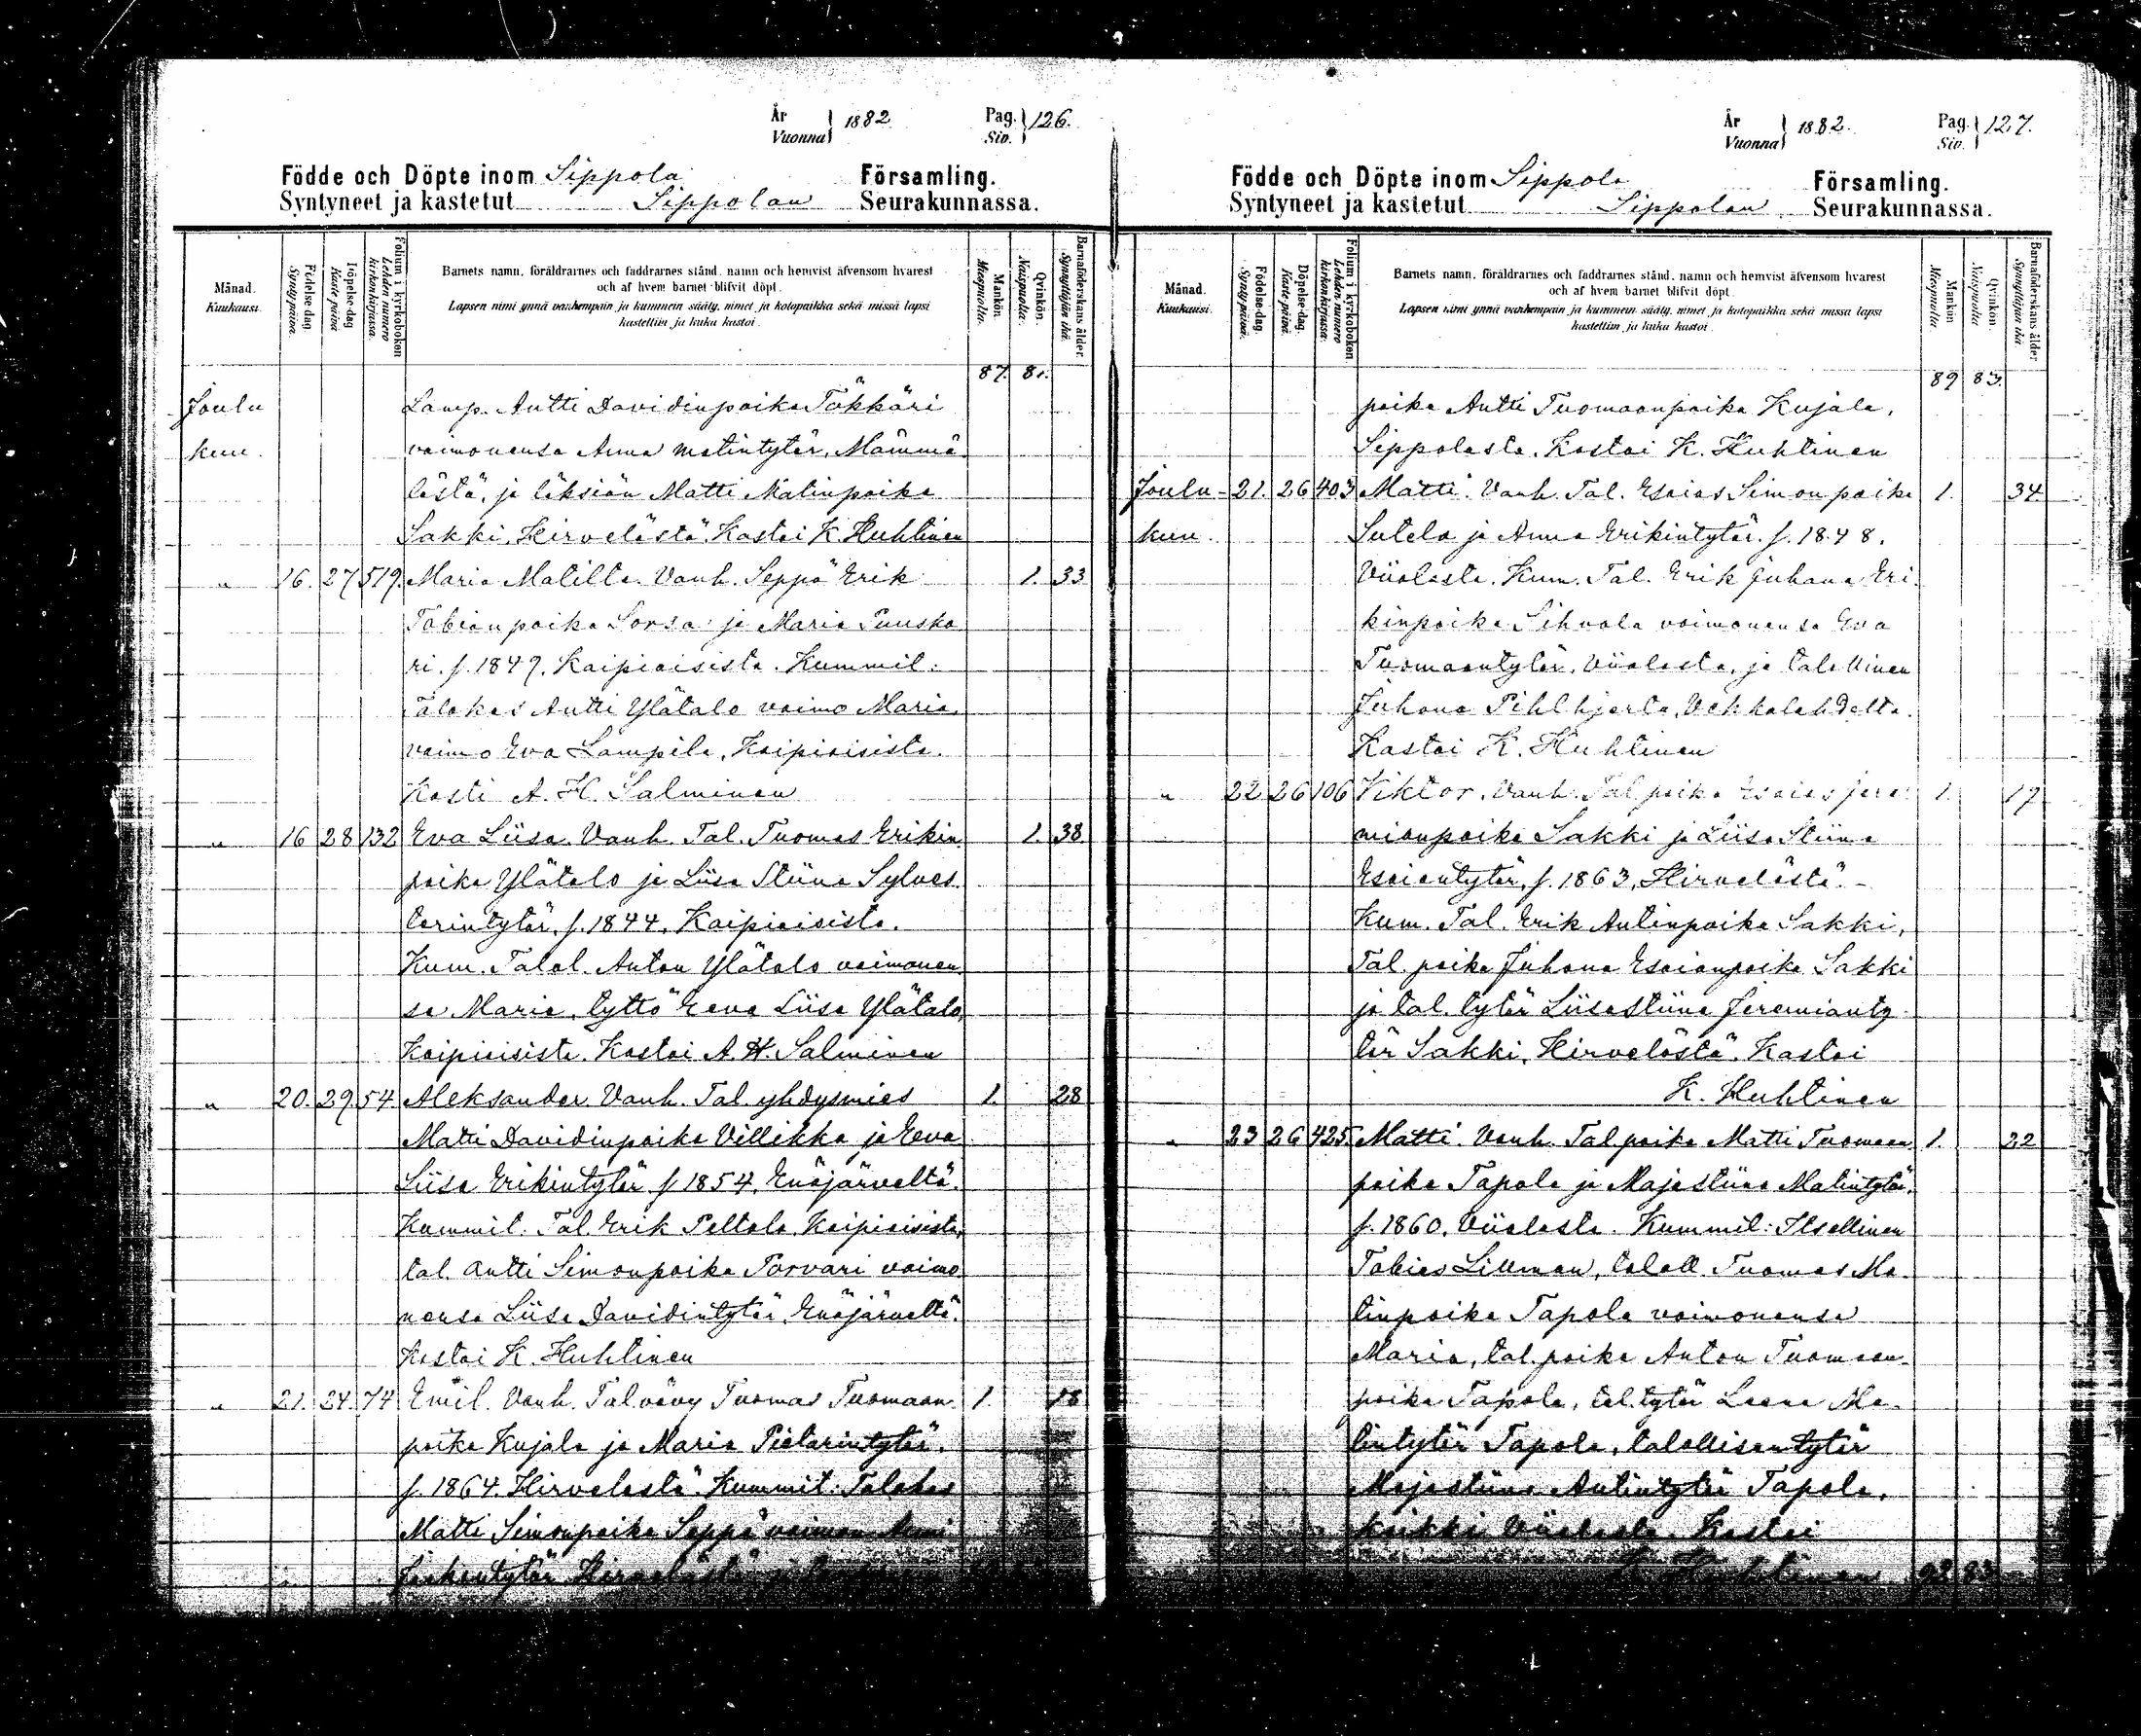 År Vuonna 1882. Pag. Siv. 126.
Födde och Döpte inom Sippola Församling.
Syntyneet ja kastetut Sippolan Seurakunnassa.
Månad. Kuukausi.
Födelse-dag. Syntypäivä.
Döpelse-dag. Kaste-päivä.
Folium i kyrkoboken. Lehden numero kirkonkirjassa.
Barnets namn, föräldrarnes och faddrarnes stånd, namn och hemvist äfvensom hvarest
och af hvem barnet blifvit döpt.
Lapsen nimi ynnä vanhempain ja kummein sääty, nimet ja kotopaikka sekä missä lapsi
kastettiin ja kuka kastoi.
Mankön. Miespuolta.
Qvinkön. Naispuolta.
Barnaföderskans ålder. Synnyttäjän ikä.
87. 81.
Joulu Lamp. Antti Davidinpoika Tökkäri
kuu. vaimonensa Anna Matintytär, Mämmä-
lästä, ja läksiän Matti Matinpoika
Sakki, Hirvelästä. Kastoi K. Huhtinen
" 16. 27 519. Maria Matilta. Vanh. Seppä Erik 1. 33
Tobianpoika Sorsa ja Maria Puusko
ri. f. 1849. Kaipiaisista. Kummit:
Talokas Antti Ylätalo vaimo Maria,
vaimo Eva Lampila, Kaipiaisista.
Kasti A. H. Salminen
" 16 28 132 Eva Liisa. Vanh. Tal. Tuomas Erikin 1. 38.
poika Ylätalo ja Liisa Stiina Sylves-
terintytär, f. 1844. Kaipiaisista.
Kum. Talol. Anton Ylätalo vaimonen
sa Maria, tyttö Eeva Liisa Ylätalo,
Kaipiaisista. Kastoi A. H. Salminen
" 20. 29. 54. Aleksander. Vanh. Tal. yhdysmies 1. 28
Matti Davidinpoika Villikka ja Eeva
Liisa Erikintytär f. 1854, Enäjärveltä.
Kummit: Tal. Erik Peltola Kaipiaisista,
tal. Antti Simonpoika Porvari vaimo
nensa Liisa Davidintytär, Enäjärveltä.
Kastoi K. Huhtinen
" 21. 24. 74 Emil. Vanh. Tal vävy Tuomas Tuomaan- 1. 18
poika Kujala ja Maria Pietarintytär.
f. 1864. Hirvelästä. Kummit: Talokas
Matti Simonpoika Seppä vaimon
Hirvelästä
År Vuonna 1882. Pag. Siv. 127.
Födde och Döpte inom Sippola Församling.
Syntyneet ja kastetut Sippolan Seurakunnassa.
Månad. Kuukausi.
Födelse-dag. Syntypäivä.
Döpelse-dag. Kaste-päivä.
Folium i kyrkoboken. Lehden numero kirkonkirjassa.
Barnets namn, föräldrarnes och faddrarnes stånd, namn och hemvist äfvensom hvarest
och af hvem barnet blifvit döpt.
Lapsen nimi ynnä vanhempain ja kummein sääty, nimet ja kotopaikka sekä missä lapsi
kastettiin ja kuka kastoi.
Mankön Miespuolta
Qvinkön. Naispuolta
Barnaföderskans ålder Synnyttäjän ikä
89 83.
poika Antti Tuomaanpoika Kujala,
Sippolasta. Kastoi K. Huhtinen
Joulu- 21. 26 403 Matti. Vanh. Tal. Esaias Simonpoika 1. 34.
kuu. Sutela ja Anna Erikintytär. f. 1848.
Viialasta. Kum. Tal. Erik Juhana Eri-
kinpoika Sihvola vaimonensa Eva
Tuomaantytär, Viialasta, ja talollinen
Juhana Pihlhjerta, Vehkalahdelta.
Kastoi K. Huhtinen
" 22 26 106 Viktor. Vanh. Tal poika Esaias Jere- 1. 19
mianpoika Sakki ja Liisa Stiina
Esaiantytär, f. 1863, Hirvelästä.-
Kum. Tal. Erik Antinpoika Sakki,
Tal. poika Juhana Esaianpoika Sakki
ja tal. tytär Liisastiina Jeremianty-
tär Sakki, Hirvelästä. Kastoi
K. Huhtinen
" 23 26 425 Matti. Vanh. Tal poika Matti Tuomaan 1. 22
poika Tapola ja Majastiina Matintytär.
f. 1860. Viialasta. Kummit: Itsellinen
Tobias Lillman, taloll. Tuomas Ma-
tinpoika Tapola vaimonensa
Maria, tal. poika Anton Tuomaan-
poika Tapola, tal. tytär Leena Ma-
tintytär Tapola, talollisentytär
Majastiina Antintytär Tapola,
kaikki Viialasta. Kastoi
K. Huhtinen 92 83